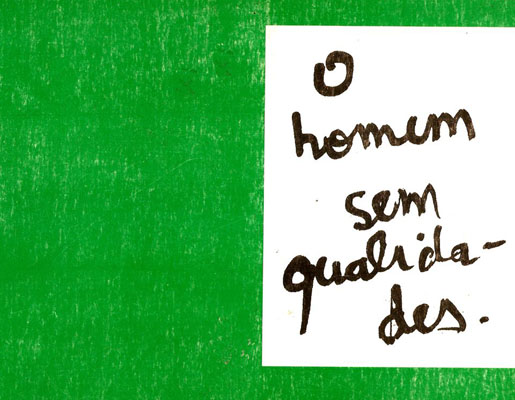 O
homem
sem
qualida-
des.